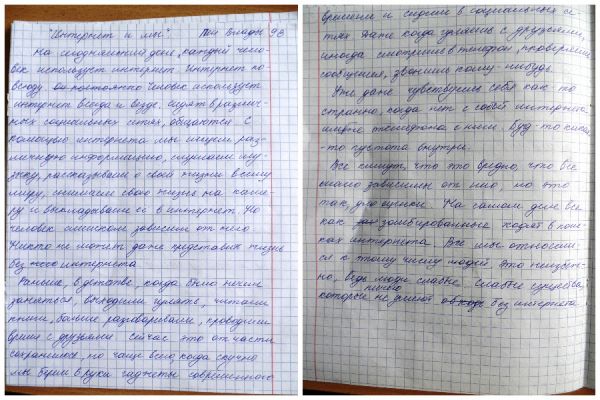 "Интернет и мы" Пак Влады 9В
На сегодняшний день, каждый чело-
век использует интернет. Интернет по-
всюду. постоянно человек использует
интернет всегда и везде. сидят в различ-
ных социальных сетях, общаются. С
помощью интернета мы ищем раз-
личную информацию, слушаем му-
зыку, рассказываем о своей жизни всему
миру, снимаем свою жизнь на каме-
ру и выкладываем её в интернет. Но
человек слишком зависим от него.
Никто не может даже представить жизнь
без интернета.
Раньше, в детстве, когда было нечем
заняться, выходили гулять, читали
книги, больше разговаривали, проводили
время с друзьями. Сейчас это отчасти
сохранилось, но чаще всего, когда скучно
мы берем в руки гаджеты современного
времени и сидим в социальных се-
тях. Даже когда гуляешь с друзьями,
иногда смотришь в телефон, проверяешь
сообщения, звонишь кому-нибудь.
Уже даже чувствуешь себя как-то
странно, когда нет с собой интернета
телефона с ним. Будто какая
-то пустота внутри.
Все кричат, что это вредно, что все
зависимы от него, но это
так, для оценки. На самом деле все
как зомбированные ходят в поис-
ках интернета. Все мы относим-
ся к тому числу людей. Это неизбеж-
но, ведь люди слабые. Слабые существа,
которые не умеют ничего без интернета.